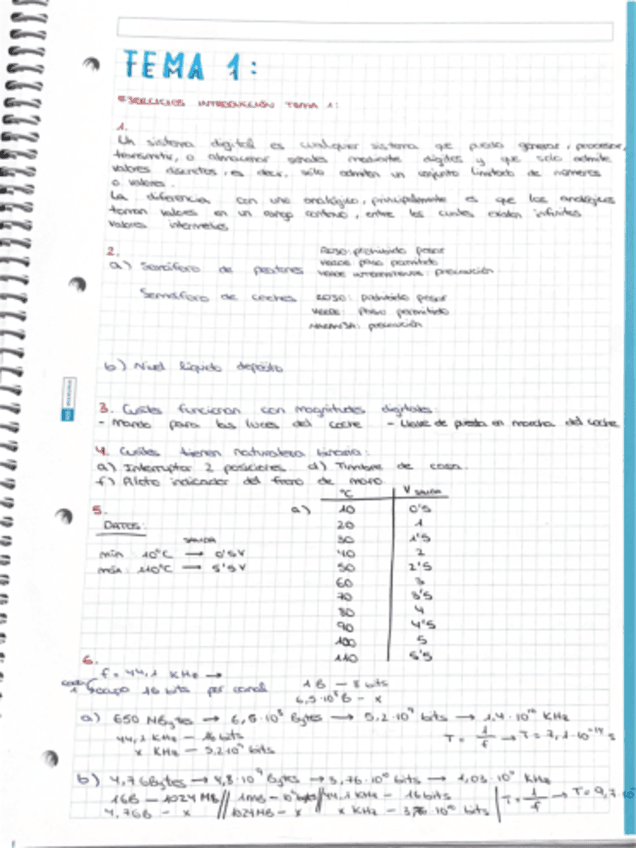 TEMA 1:
EJERCICIOS INTRODUCCIÓN TEMA 1:
1.
Un sistema digital es cualquier sistema que pueda generar, procesar,
transmitir, o almacenar señales mediante dígitos y que solo admite
valores discretos, es decir, sólo admiten un conjunto limitado de números
o valores.
La diferencia con uno analógico, principalmente es que los analógicos
toman valores en un rango continuo, entre los cuales existen infinitos
valores intermedios
2.
a) Semáforo de peatones
ROJO: prohibido pasar
VERDE: paso permitido
VERDE INTERMITENTE: precaución
Semáforo de coches
ROJO: prohibido pasar
VERDE: Paso permitido
NARANJA: precaución
b) Nivel líquido depósito
3. Cuáles funcionan con magnitudes digitales:
- Mando para las luces del coche - Llave de puesta en marcha del coche
4. Cuáles tienen naturaleza binaria:
a) Interruptor 2 posiciones d) Timbre de casa.
f) Piloto indicador del freno de mano
5.
DATOS:
SALIDA
mín 10ºC → 0'5V
máx 110ºC → 5'5V
a)
ºC V SALIDA
10 0'5
20 1
30 1'5
40 2
50 2'5
60 3
70 3'5
80 4
90 4'5
100 5
110 5'5
6.
f = 44,1 KHz →
16 bits por canal
1B - 8 bits
6,5·10⁸B - x
a) 650 MBytes → 6,5·10⁸ Bytes → 5,2·10⁹ bits → 1,4·10¹⁰ KHz
44,1 KHz - 16 bits
x KHz - 5,2·10⁹ bits
T = 1/f → T = 7,1·10⁻¹⁴ s
b) 4,7 GBytes → 4,8·10⁹ Bytes → 3,76·10¹⁰ bits → 1,03·10¹¹ KHz
1GB - 1024 MB // 1MB - 10⁶ bytes // 44,1 KHz - 16 bits
4,7GB - x 1024MB - x x KHz - 3,76·10¹⁰ bits
T = 1/f → T = 9,7·10